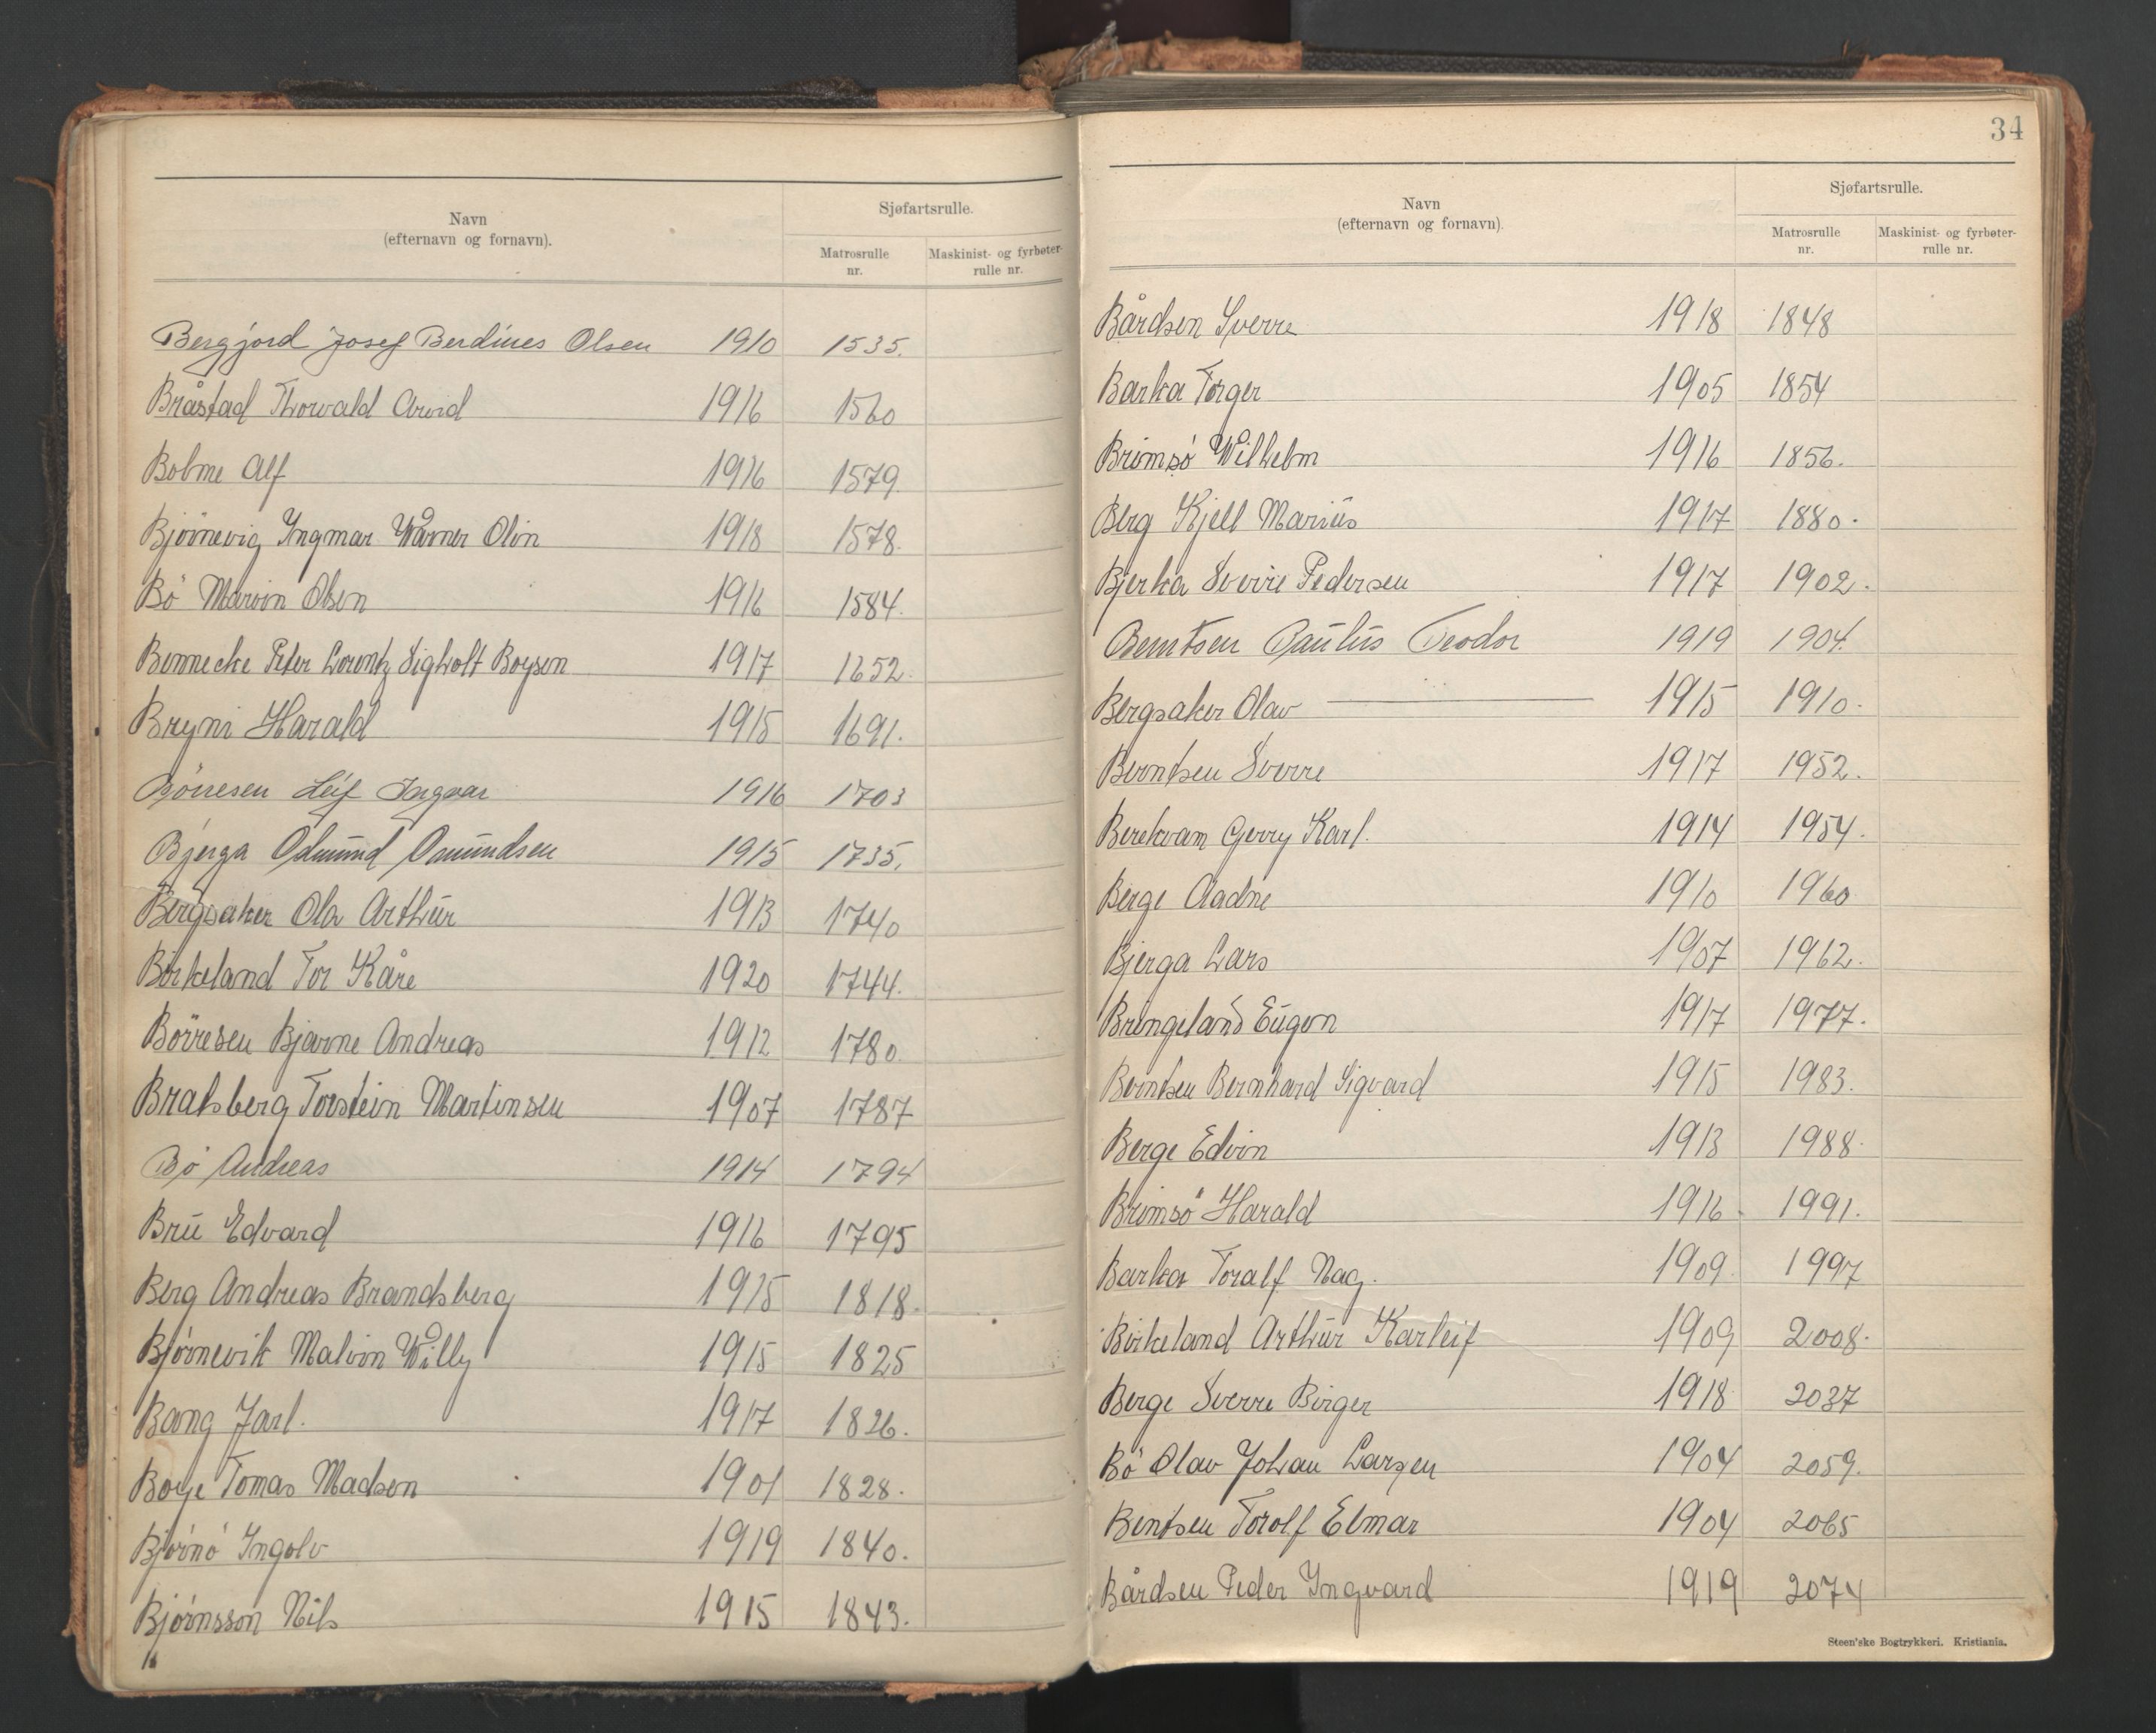 Navn
(efternavn og fornavn).
Sjøfartsrulle.
Matrosrulle
nr.
Maskinist- og fyrbøter-
rulle nr.
Bergjord Josef Berdines Olsen 1910 1535.
Bråstad Thorvald Arvid 1916 1560
Bolme Alf 1916 1579.
Bjørnevig Ingmar Warner Olin 1918 1578.
Bö Marvin Olsen 1916 1584.
Bennecke Peter Lorentz Sigholt Boysen 1917 1652.
Bryni Harald 1915 1691.
Börresen Leif Ingvar 1916 1703
Bjerga Odmund Osmundsen 1915 1735.
Bergsaker Ola Arthur 1913 1740
Birkeland Tor Kåre 1920 1744.
Börresen Bjarne Andreas 1912 1780.
Bratsberg Torstein Martinsen 1907 1787
Bö Andreas 1914 1794
Bru Edvard 1916 1795
Berg Andreas Brandsberg 1915 1818.
Bjørnevik Malvin Willy 1915 1825
Bang Jarl. 1917 1826.
Boye Tomas Madsen 1901 1828.
Bjørnö Ingolv 1919 1840.
Bjørnsson Nils 1915 1843.
34
Navn
(efternavn og fornavn).
Sjøfartsrulle.
Matrosrulle
nr.
Maskinist- og fyrbøter-
rulle nr.
Bårdsen Sverre 1918 1848
Barka Torger 1905 1854
Brimsö Wilhelm 1916 1856.
Berg Kjell Marius 1917 1880.
Bjerka Sverre Pedersen 1917 1902.
Berntsen Paulus Teodor 1919 1904.
Bergsaker Olav 1915 1910.
Berntsen Sverre 1917 1952.
Berekvam Gerry Karl. 1914 1954.
Berge Aadne 1910 1960
Bjerga Lars 1907 1962.
Bringeland Eugen 1917 1977.
Berntsen Bernhard Sigvard 1915 1983.
Berge Edvin 1913 1988.
Brimsö Harald 1916 1991.
Barka Toralf Nag. 1909 1997
Birkeland Arthur Karleif 1909 2008.
Berge Sverre Birger 1918 2037
Bö Olav Johan Larsen 1904 2059.
Bentsen Torolf Elmar 1904 2065
Bårdsen Peder Ingvard 1919 2074
Steen'ske Bogtrykkeri. Kristiania.